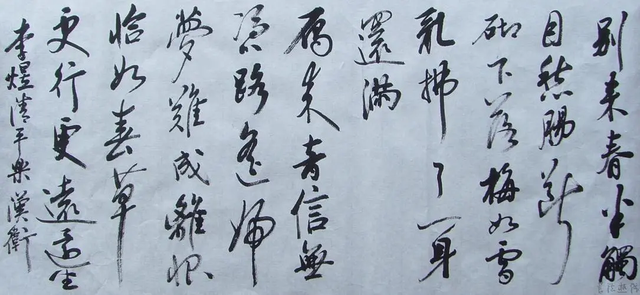 别来春半觸
目愁腸断
砌下落梅如雪
乱拂了一身
還滿
雁来音信無
憑路遙歸
夢難成離恨
恰如春草
更行更遠還生
李煜清平樂漢衛